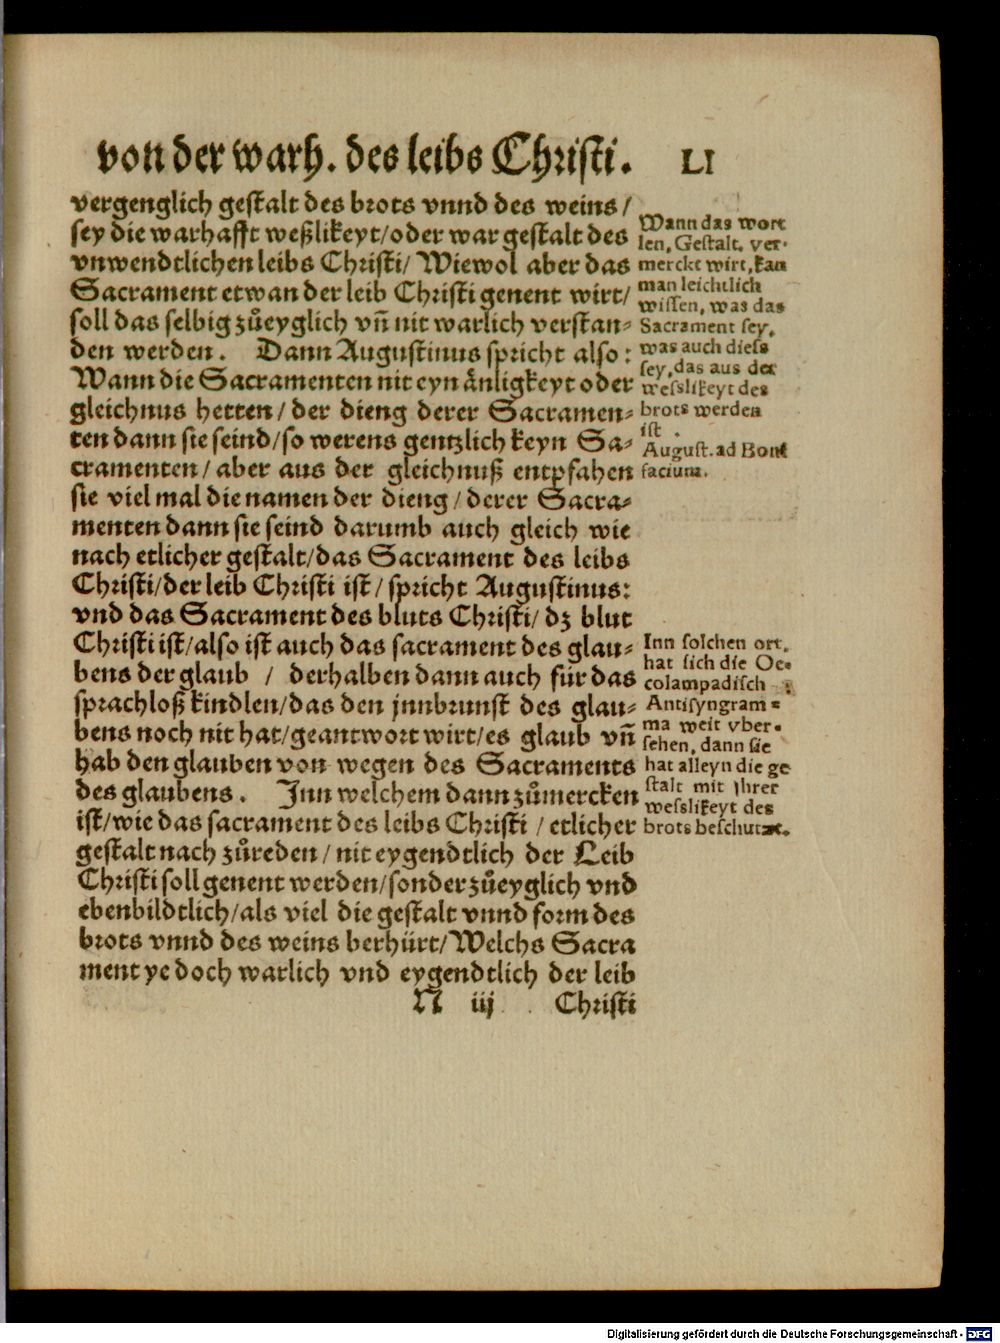 von der warh. des leibs Christi. LI
vergenglich gestalt des brots vnnd des weins/
sey die warhafft weßlikeyt/oder war gestalt des
vnwendtlichen leibs Christi/ Wiewol aber das
Sacrament etwan der leib Christi genent wirt/
soll das selbig zůeyglich vn̄ nit warlich verstan-
den werden. Dann Augustinus spricht also:
Wann die Sacramenten nit eyn änligkeyt oder
gleichnus hetten/ der dieng derer Sacramen-
ten dann sie seind/so werens gentzlich keyn Sa-
cramenten/ aber aus der gleichnuß entpfahen
sie viel mal die namen der dieng/ derer Sacra-
menten dann sie seind darumb auch gleich wie
nach etlicher gestalt/das Sacrament des leibs
Christi/der leib Christi ist/ spricht Augustinus:
vnd das Sacrament des bluts Christi/ dz blut
Christi ist/also ist auch das sacrament des glau-
bens der glaub / derhalben dann auch für das
sprachloß kindlen/das den jnnbrunst des glau-
bens noch nit hat/geantwort wirt/es glaub vn̄
hab den glauben von wegen des Sacraments
des glaubens. Jnn welchem dann zůmercken
ist/wie das sacrament des leibs Christi / etlicher
gestalt nach zůreden/ nit eygendtlich der Leib
Christi soll genent werden/sonder zůeyglich vnd
ebenbildtlich/als viel die gestalt vnnd form des
brots vnnd des weins berhürt/Welchs Sacra
ment ye doch warlich vnd eygendtlich der leib
N iij Christi
Wann das wort
len, Gestalt, ver-
merckt wirt, kan
man leichtlich
wissen, was das
Sacrament sey,
was auch diess
sey, das aus der
wesslikeyt des
brots werden
ist.
August. ad Boni
facium.
Inn solchen ort,
hat sich die Oe-
colampadisch
Antisyngram-
ma weit vber-
sehen, dann sie
hat alleyn die ge
stalt mit jhrer
wesslikeyt des
brots beschutzt.
Digitalisierung gefördert durch die Deutsche Forschungsgemeinschaft - DFG